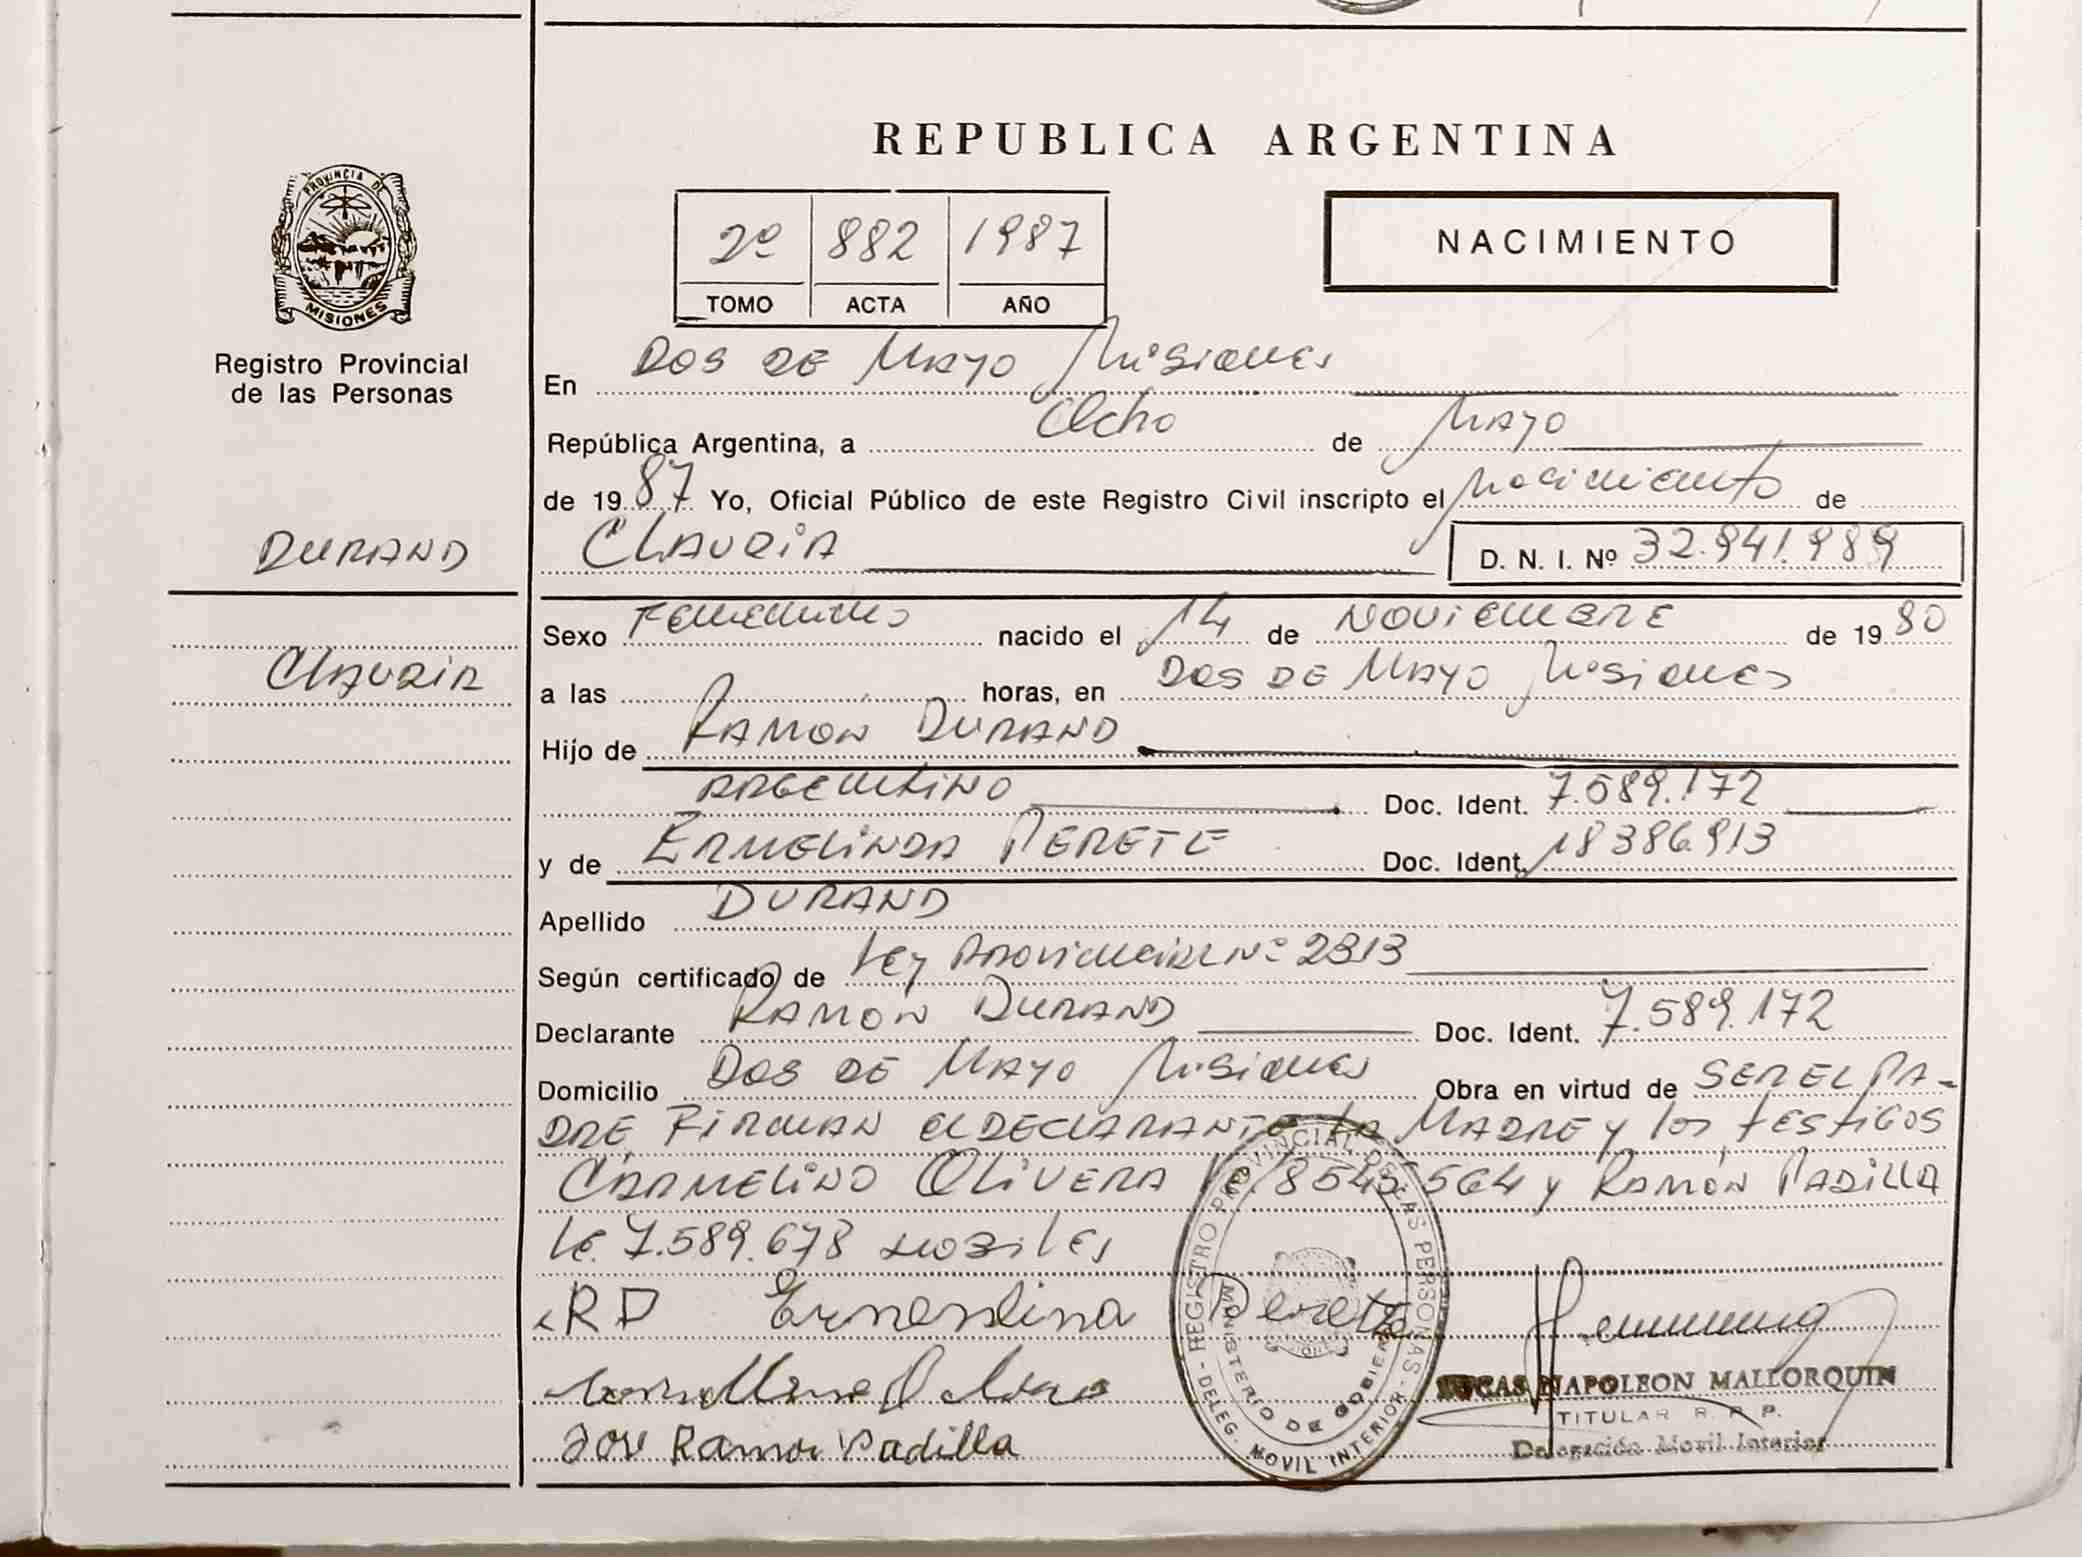 REPUBLICA ARGENTINA
PROVINCIA DE
MISIONES
Registro Provincial
de las Personas
2º 882 1987
TOMO ACTA AÑO
NACIMIENTO
En DOS DE MAYO Misiones
República Argentina, a Ocho de MAYO
de 1987 Yo, Oficial Público de este Registro Civil inscripto el Nacimiento de
DURAND
CLAUDIA
D. N. I. Nº 32.941.989
Sexo Femenino nacido el 14 de NOVIEMBRE de 1980
CLAUDIA
a las horas, en DOS DE MAYO Misiones
Hijo de RAMON DURAND
ARGENTINO Doc. Ident. 7.589.172
y de ERMELINDA PERETE Doc. Ident. 18386913
Apellido DURAND
Según certificado de Ley Provincial Nº 2313
Declarante RAMON DURAND Doc. Ident. 7.589.172
Domicilio DOS DE MAYO Misiones Obra en virtud de SER EL PA-
DRE, FIRMAN el DECLARANTE la MADRE y los testigos
CARMELINO OLIVERA le. 8545564 y RAMÓN PADILLA
le. 7.589.678
RD Ernestina Perete
Jose Ramon Padilla
REGISTRO PROVINCIAL DE LAS PERSONAS - DELEG. MOVIL INTERIOR -
MINISTERIO DE GOBIERNO
LUCAS NAPOLEON MALLORQUIN
TITULAR R. P. P.
Delegación Movil Interior